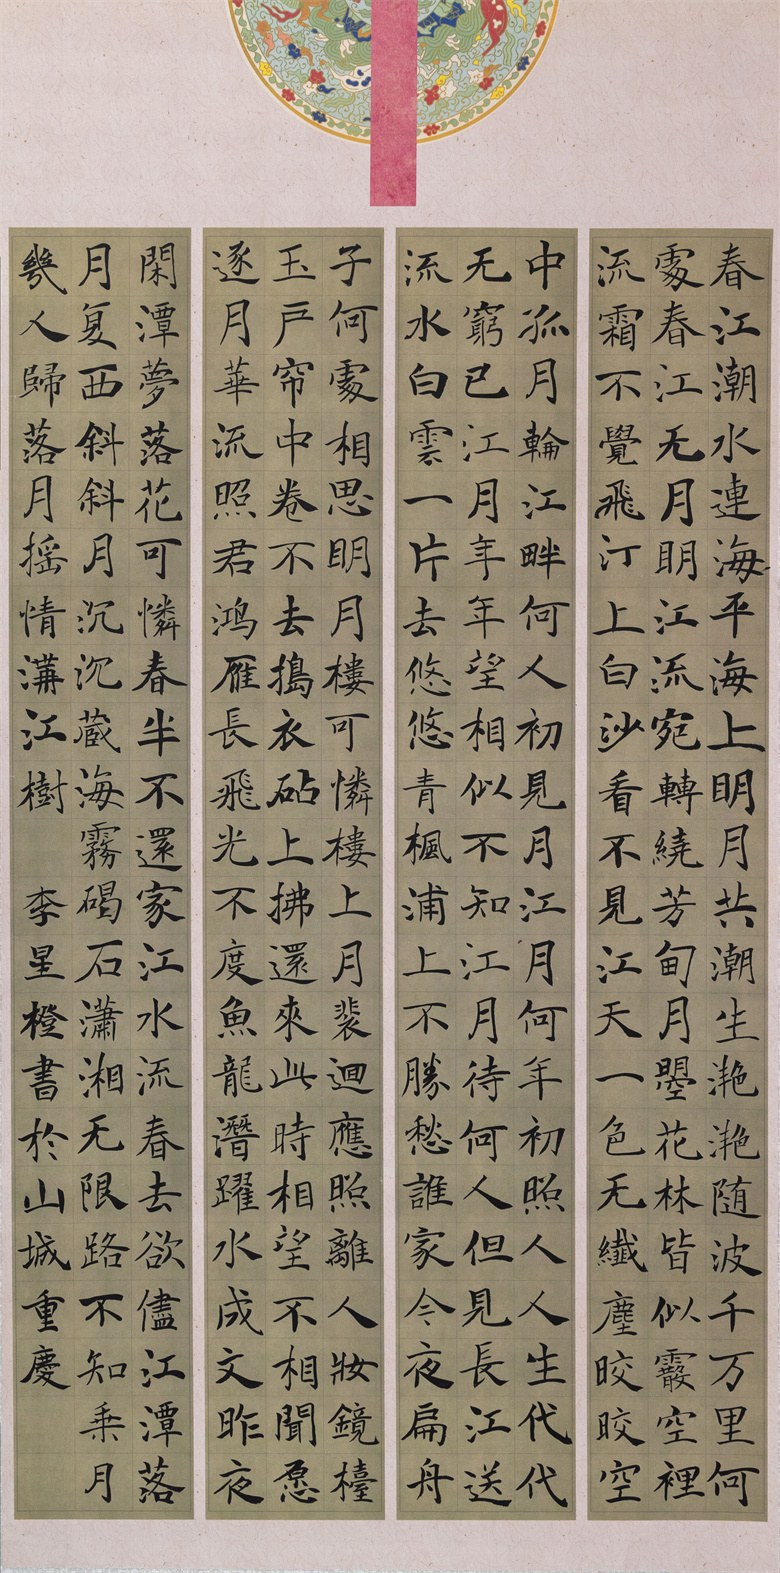 春江潮水連海平海上明月共潮生滟滟随波千万里何
處春江无月明江流宛轉繞芳甸月曌花林皆似霰空裡
流霜不覺飛汀上白沙看不見江天一色无纖塵皎皎空
中孤月輪江畔何人初見月江月何年初照人人生代代
无窮已江月年年望相似不知江月待何人但見長江送
流水白雲一片去悠悠青楓浦上不勝愁誰家今夜扁舟
子何處相思明月樓可憐樓上月裴迴應照離人妝鏡檯
玉戸帘中卷不去搗衣砧上拂還來此時相望不相聞愿
逐月華流照君鸿雁長飛光不度魚龍潛躍水成文昨夜
閑潭夢落花可憐春半不還家江水流春去欲儘江潭落
月复西斜斜月沉沉蔵海霧碣石瀟湘无限路不知乘月
幾人歸落月摇情满江樹 李星橙書於山城重慶